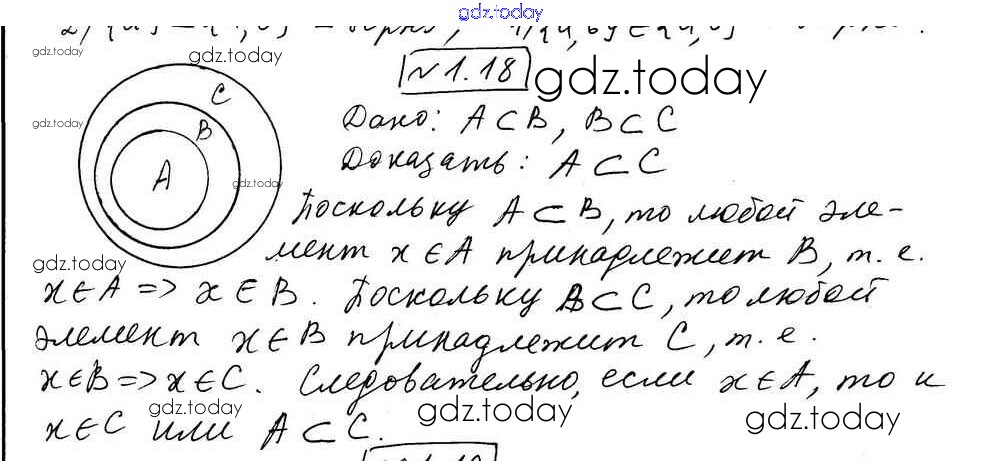 gdz.today
gdz.today
gdz.today
№1.18
gdz.today
C
B
A
gdz.today
gdz.today
Дано: A⊂B, B⊂C
Доказать: A⊂C
Поскольку A⊂B, то любой эле-
мент x∈A принадлежит B, т. е.
gdz.today
x∈A => x∈B. Поскольку B⊂C, то любой
элемент x∈B принадлежит C, т. е.
x∈B => x∈C. Следовательно, если x∈A, то и
gdz.today
gdz.today
gdz.today
x∈C или A⊂C.